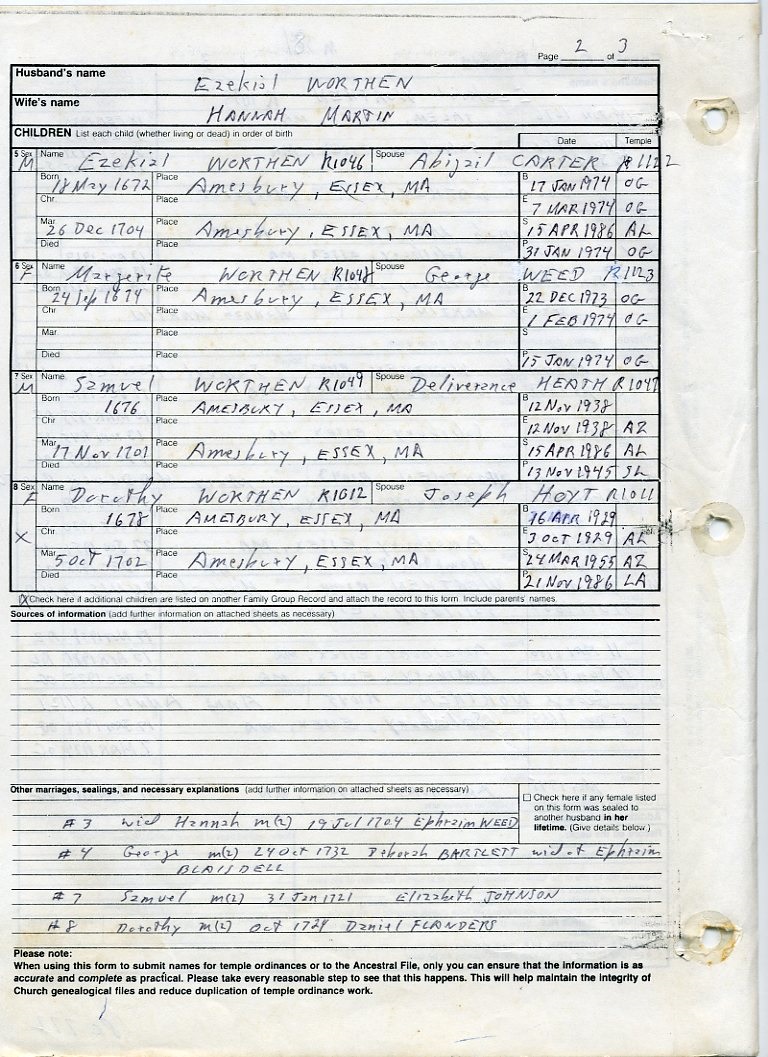 Page 2 of 3
Husband's name Ezekiel WORTHEN
Wife's name HANNAH MARTIN
CHILDREN List each child (whether living or dead) in order of birth Date Temple
5 Sex M Name Ezekiel WORTHEN R1046 Spouse Abigail CARTER R1122
Born 18 May 1672 Place Amesbury, ESSEX, MA B 17 JAN 1974 OG
Chr. Place E 7 MAR 1974 OG
Mar. 26 Dec 1704 Place Amesbury, ESSEX, MA S 15 APR 1986 AL
Died Place P 31 JAN 1974 OG
6 Sex F Name Margerite WORTHEN R1048 Spouse George WEED R1123
Born 24 Sep 1674 Place Amesbury, ESSEX, MA B 22 DEC 1973 OG
Chr Place E 1 FEB 1974 OG
Mar. Place S
Died Place P 15 JAN 1974 OG
7 Sex M Name Samuel WORTHEN R1049 Spouse Deliverance HEATH R1047
Born 1676 Place AMESBURY, ESSEX, MA B 12 Nov 1938
Chr Place E 12 Nov 1938 AZ
Mar. 17 Nov 1701 Place Amesbury, ESSEX, MA S 15 APR 1986 AL
Died Place P 13 Nov 1945 SL
8 Sex F Name Dorothy WORTHEN R1012 Spouse Joseph HOYT R1011
Born 1678 Place AMESBURY, ESSEX, MA B 16 APR 1929
X Chr. Place E 3 Oct 1929 AL
Mar. 5 Oct 1702 Place Amesbury, ESSEX, MA S 24 MAR 1955 AZ
Died Place P 21 Nov 1986 LA
X Check here if additional children are listed on another Family Group Record and attach the record to this form. Include parents' names.
Sources of information (add further information on attached sheets as necessary)
Other marriages, sealings, and necessary explanations (add further information on attached sheets as necessary)
Check here if any female listed
on this form was sealed to
another husband in her
lifetime. (Give details below.)
#3 wid Hannah m(2) 19 Jul 1704 Ephraim WEED
#4 George m(2) 24 Oct 1732 Deborah BARTLETT wid of Ephraim
BLAISDELL
#7 Samuel m(2) 31 Jan 1721 Elizabeth JOHNSON
#8 Dorothy m(2) Oct 1724 Daniel FLANDERS
Please note:
When using this form to submit names for temple ordinances or to the Ancestral File, only you can ensure that the information is as
accurate and complete as practical. Please take every reasonable step to see that this happens. This will help maintain the integrity of
Church genealogical files and reduce duplication of temple ordinance work.